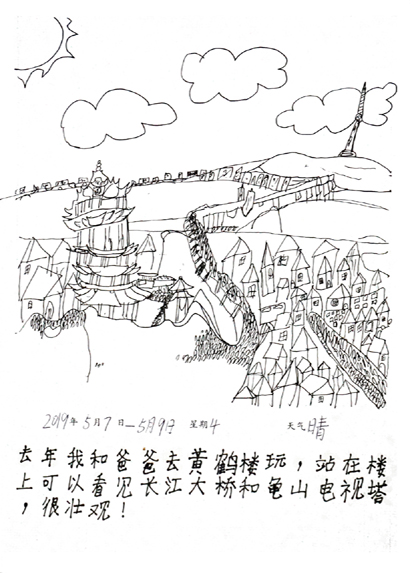 2019年5月7日—5月9日 星期4 天气晴
去年我和爸爸去黄鹤楼玩，站在楼
上可以看见长江大桥和龟山电视塔
，很壮观！